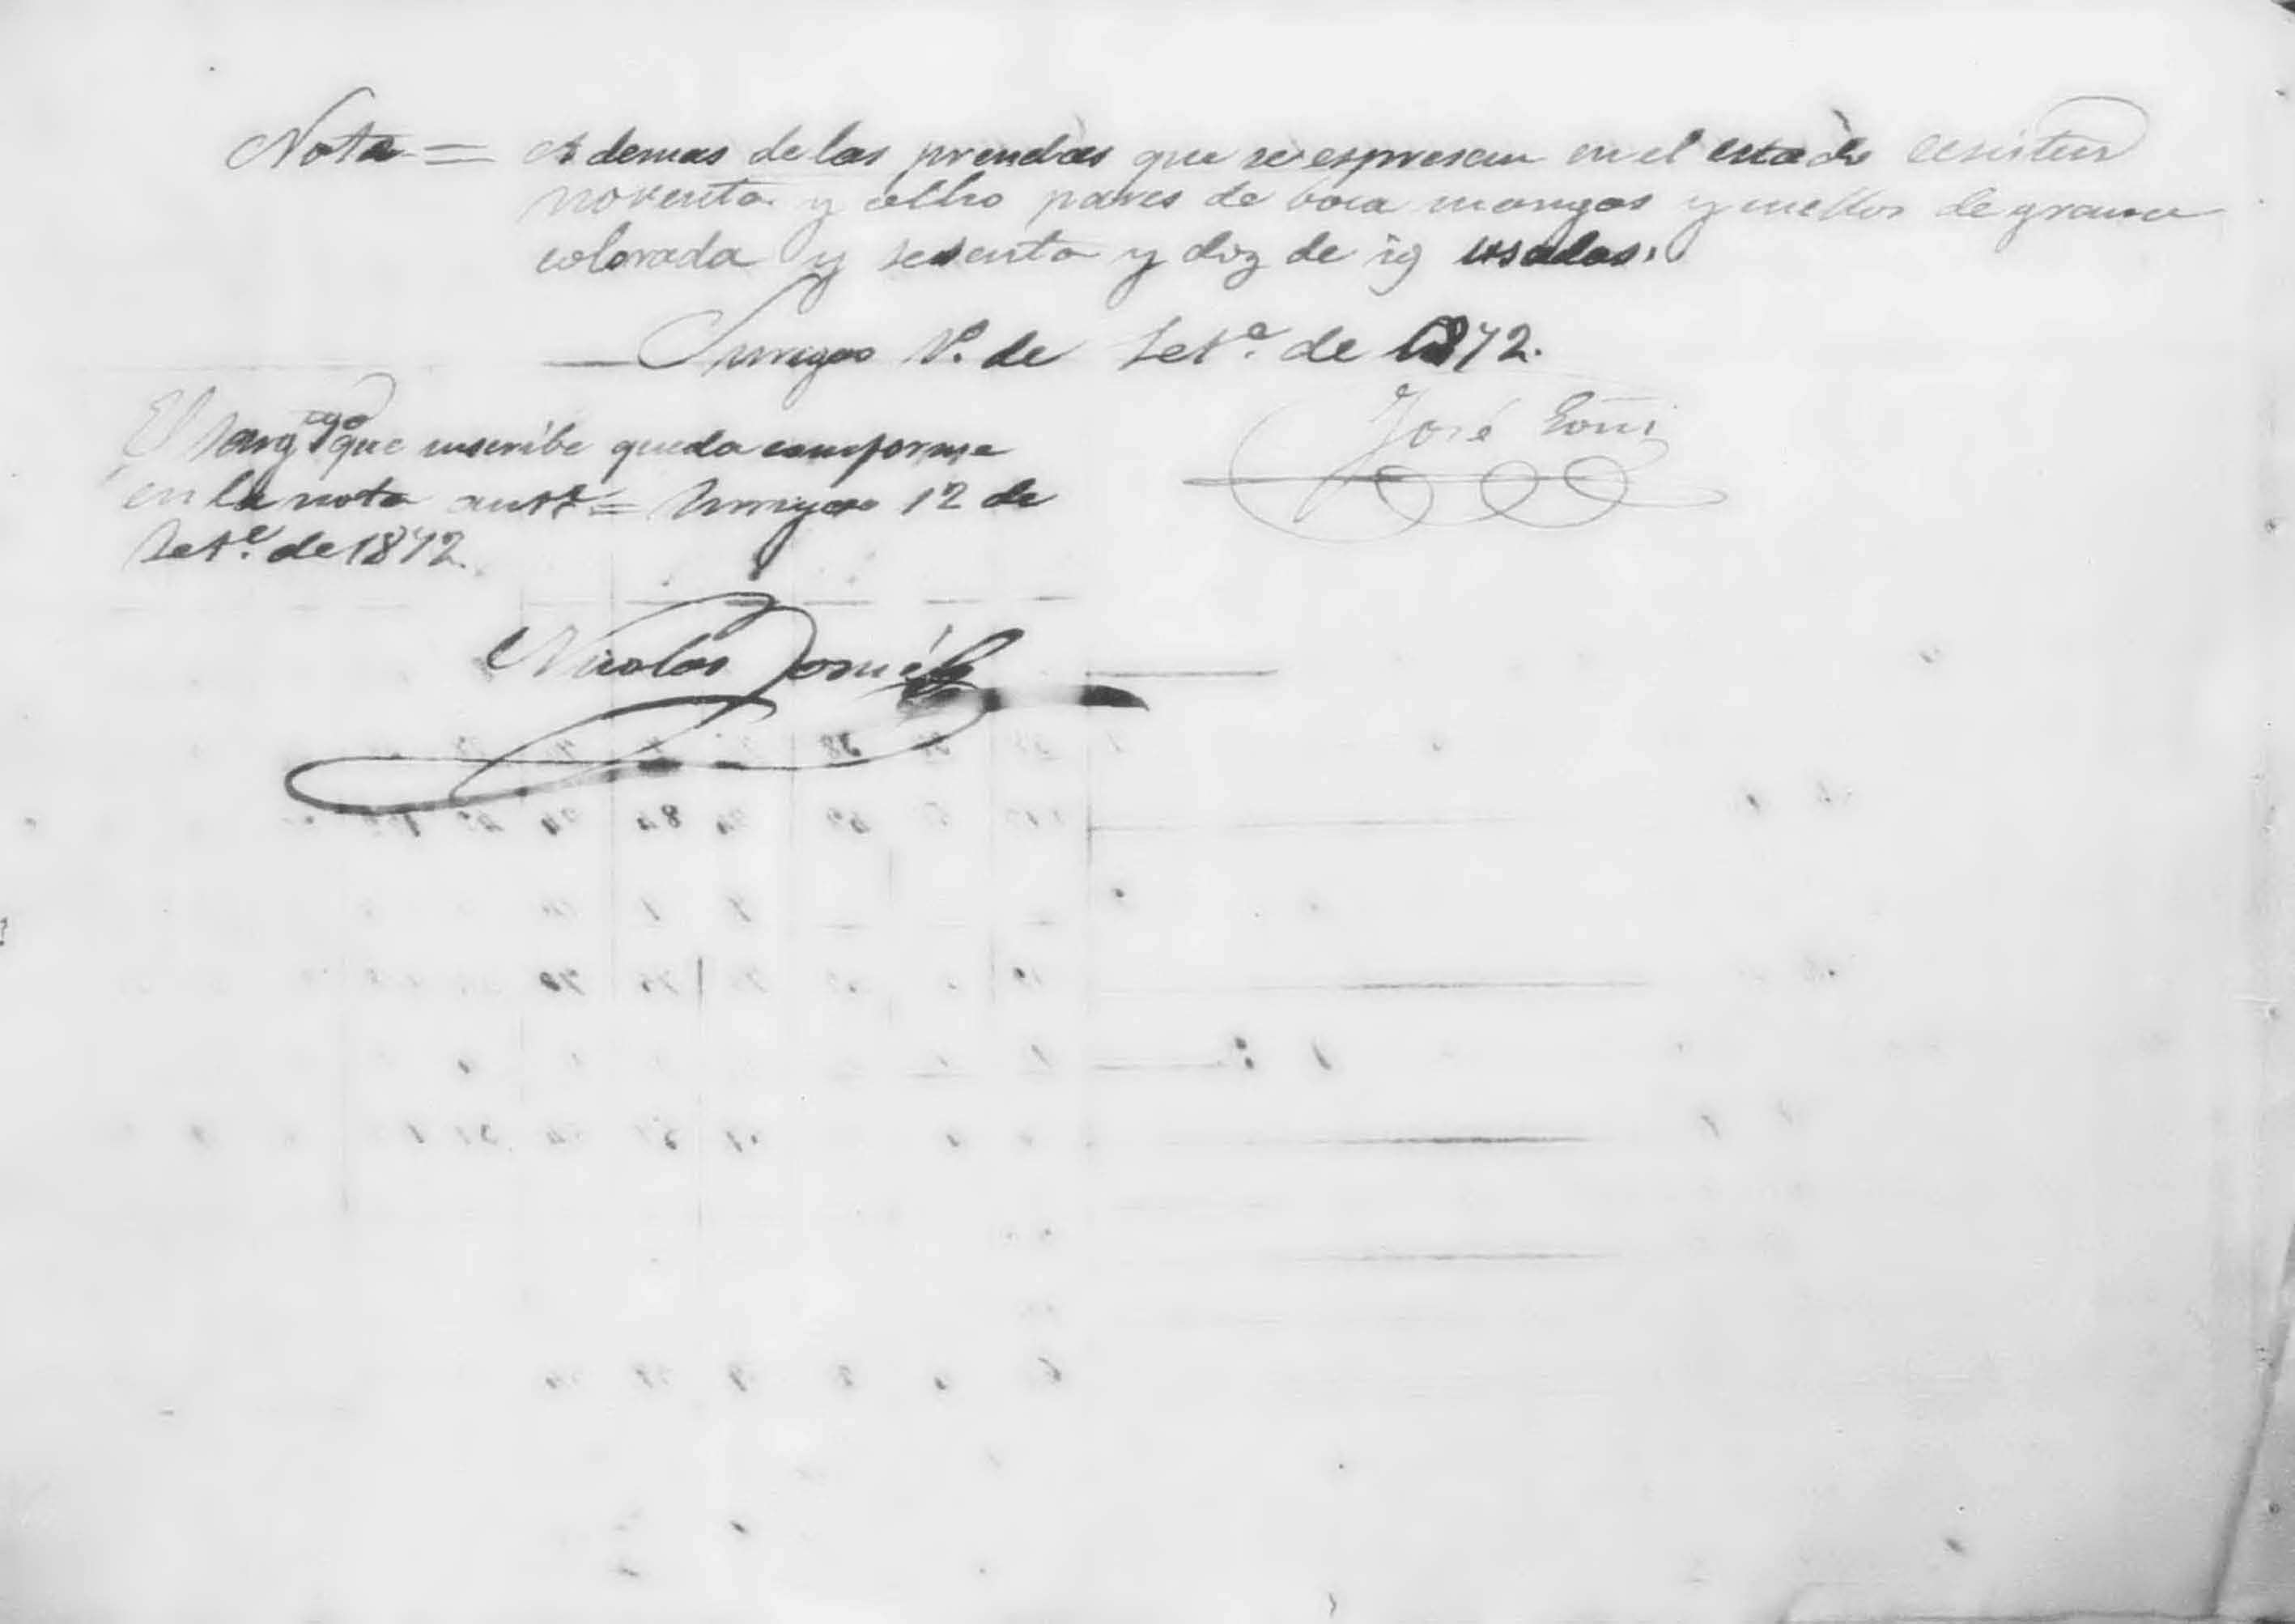 Nota = Ademas de las prendas que se espresan en el estado ecsisten
noventa y ocho pares de boca mangas y cuellos de grana
colorada y sesenta y doz de id usadas.
Surigao 1º. de Setᵉ. de 1872.
José Goñi
El Sargᵗᵒ que suscribe queda comforme
en la nota antʳ = Surigao 12 de
Setᵉ. de 1872.
Nicolas Gomés